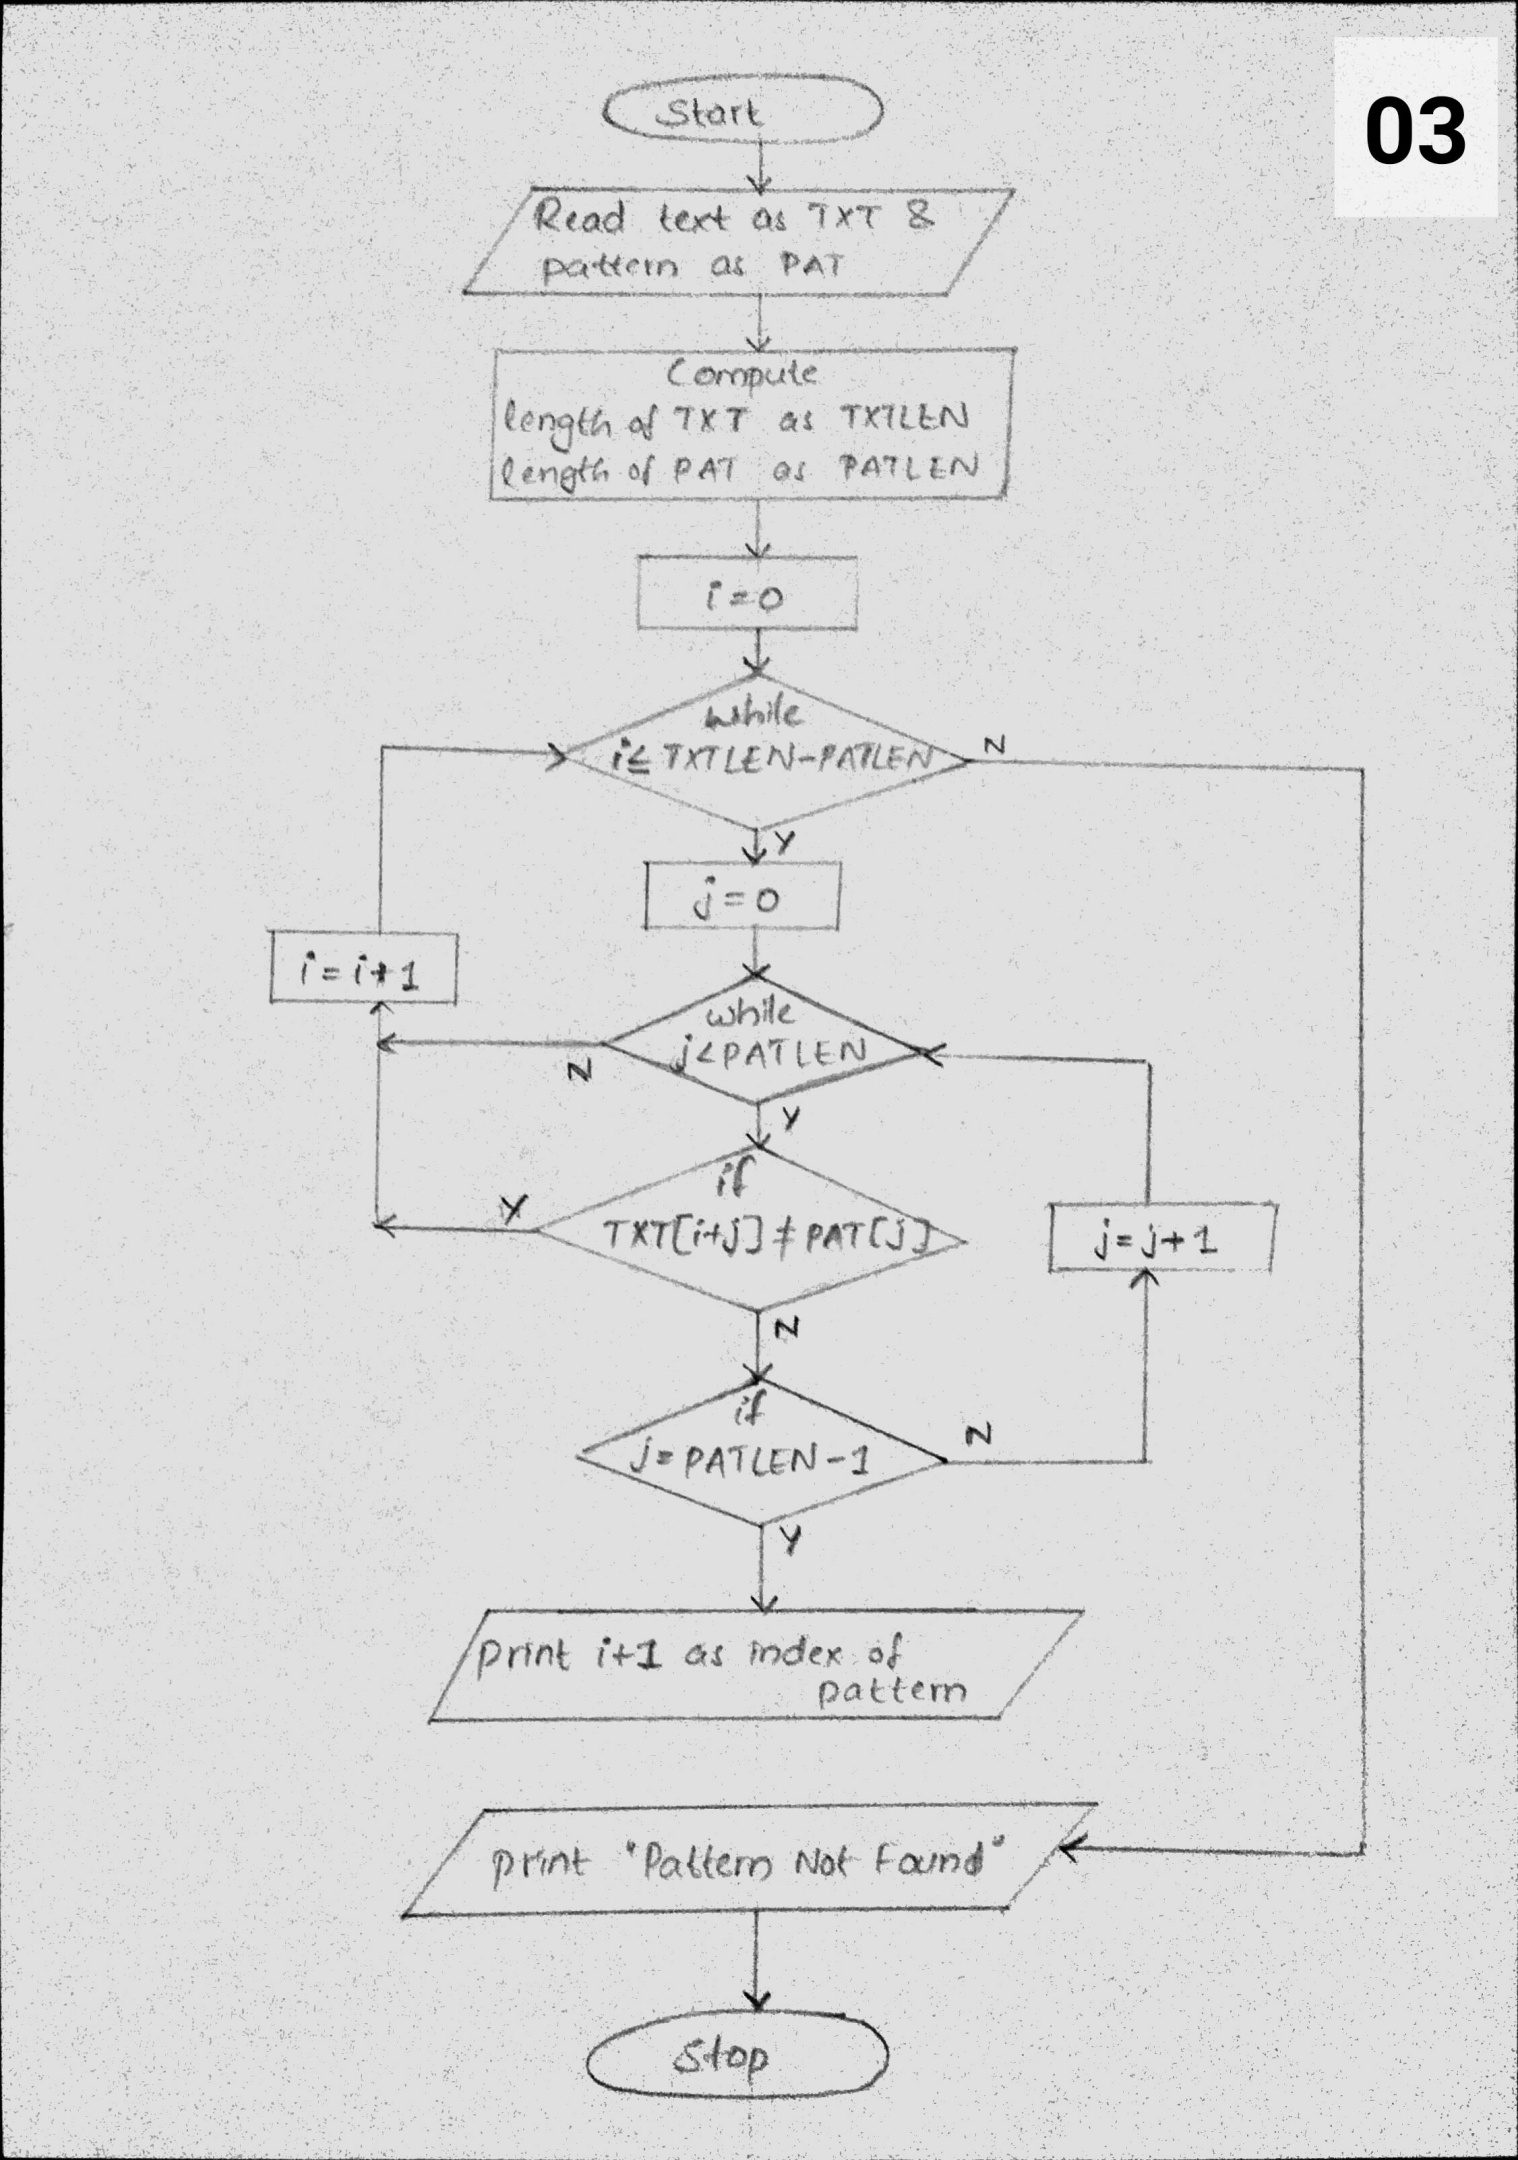 03
Start
Read text as TXT &
pattern as PAT
Compute
length of TXT as TXTLEN
length of PAT as PATLEN
i=0
while
i≤ TXTLEN-PATLEN
N
Y
j=0
i=i+1
while
j<PATLEN
N
Y
if
TXT[i+j]≠PAT[j]
Y
j=j+1
N
if
j=PATLEN-1
N
Y
print i+1 as index of
pattern
print "Pattern Not Found"
Stop